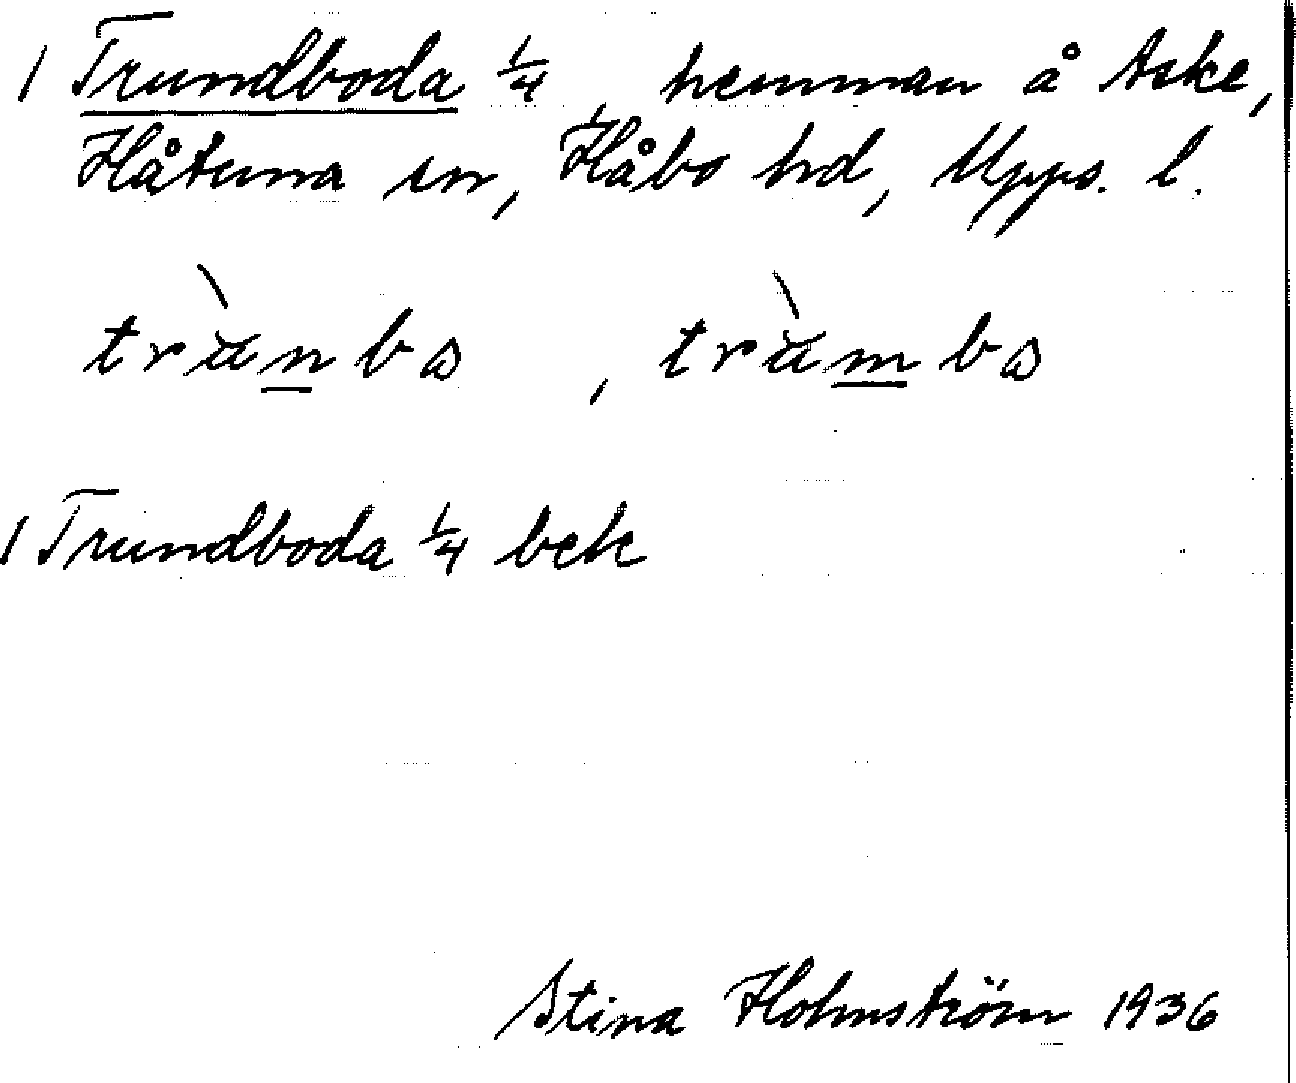 1 Trundboda ¼, hemman å Aske,
Håtuna sn, Håbo hd, Upps. l.
trùnba , trùmba
1 Trundboda ¼ bek
Stina Holmström 1936